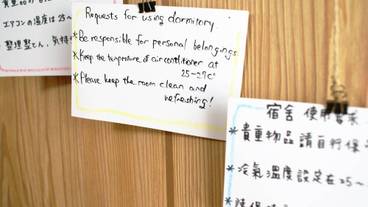 貴重品の
エアコンの温度は25℃
整理整とん、気持
Requests for using dormitory
*Be responsible for personal belongings
*Keep the temperature of air conditioner at
25~27℃
*Please keep the room clean and
refreshing!
宿舍 使用
*貴重物品 請自行保
*冷氣溫度設定在25~